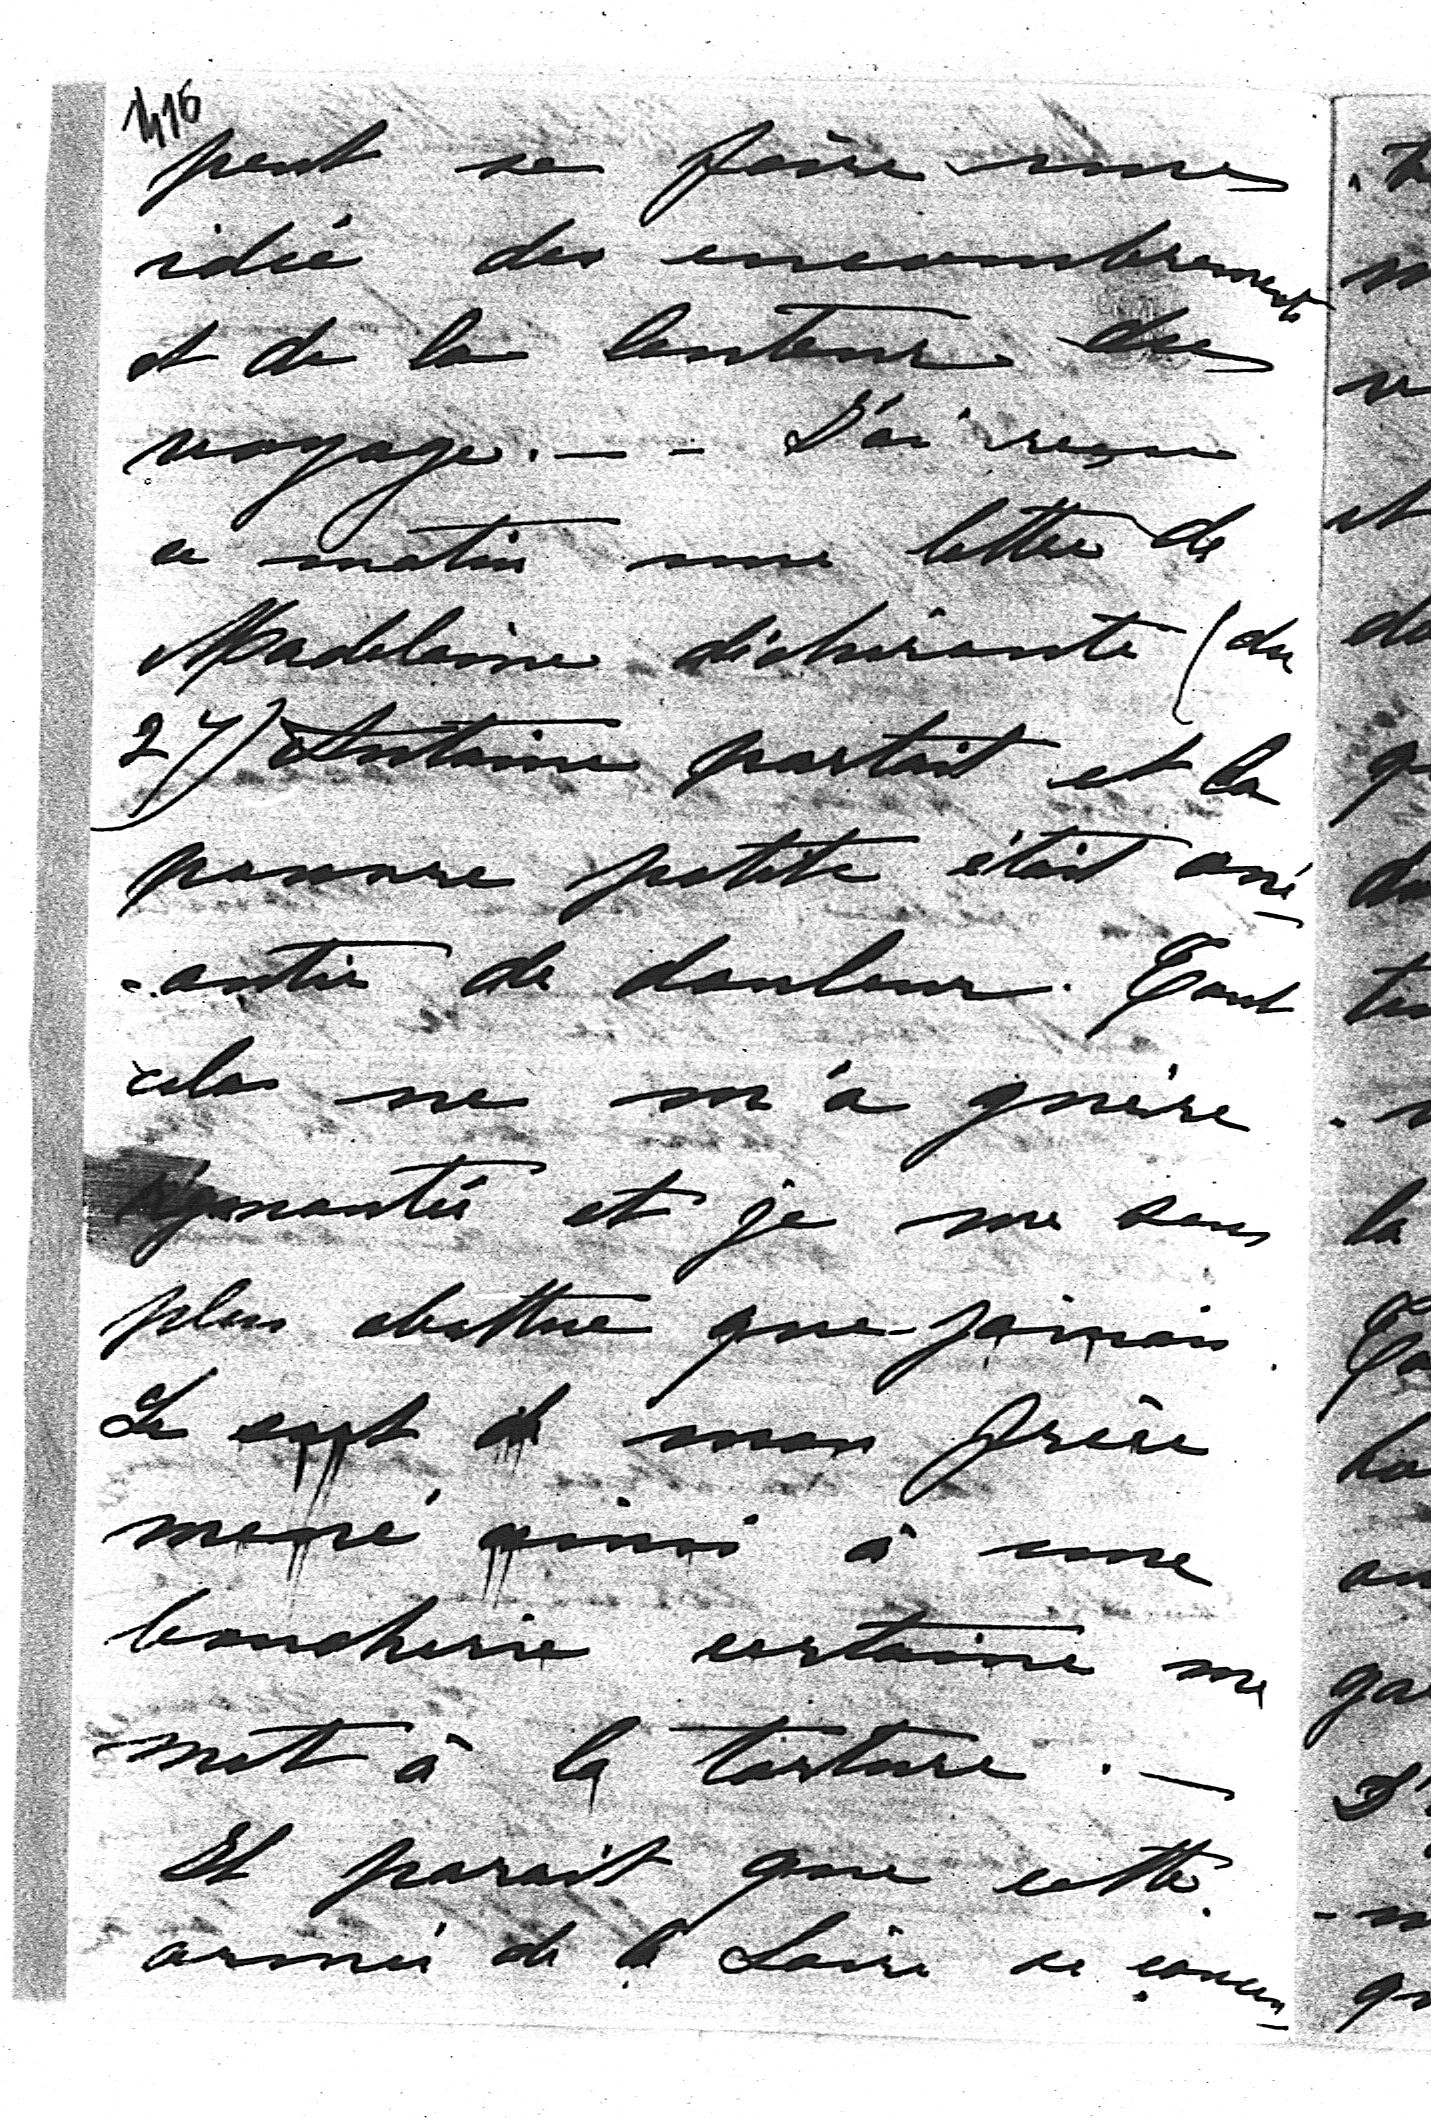 peut se faire une
idée des encombrements
et de la lenteur du
voyage. — - J'ai reçu
ce matin une lettre de
Madeleine déchirante (du
27) Antoine partait et la
pauvre petite était ané
-antie de douleur. Tout
cela ne m'a guère
remontée et je me sens
plus abattue que jamais.
Le sort de mon frère
mené ainsi à une
boucherie certaine me
met à la torture. —
Il parait que cette
armée de la Loire se concen